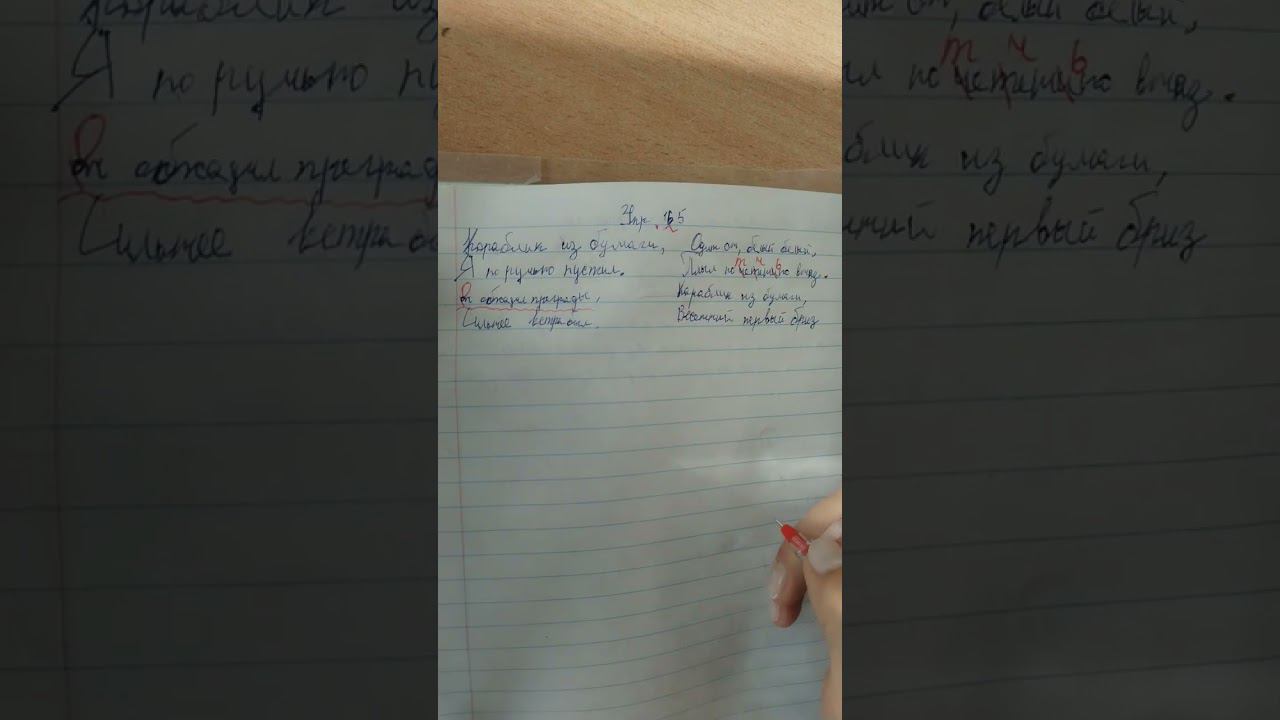 Упр. 165
Кораблик из бумаги,
Я по ручью пустил.
Он обхазил преграды,
Сильнее ветра был.
Один он, белый белый,
Плыл по течению вниз.
Кораблик из бумаги,
Весенний первый бриз